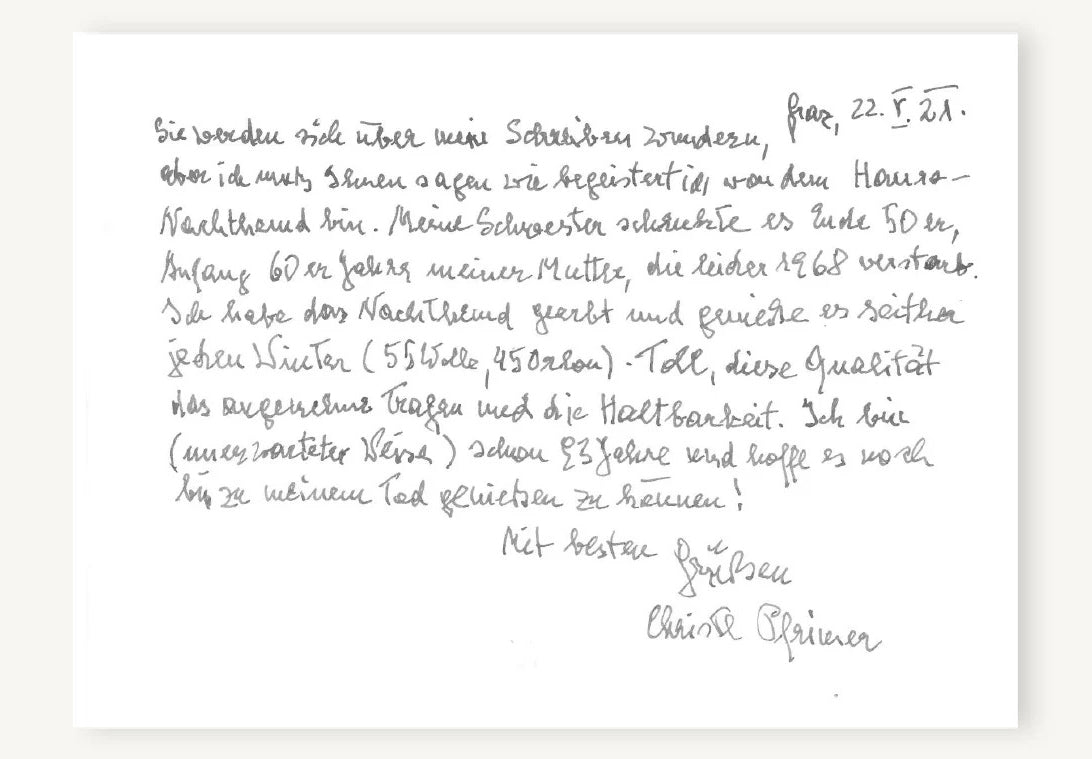 Graz, 22. V. 21.
Sie werden sich über meine Schreiben wundern,
aber ich muß Ihnen sagen wie begeistert ich von dem Hauro-
Nachthemd bin. Meine Schwester schenkte es Ende 50er,
Anfang 60er Jahre meiner Mutter, die leider 1968 verstarb.
Ich habe das Nachthemd geerbt und genieße es seither
jeden Winter (55 Wolle, 45 Orlon). Toll, diese Qualität
das angenehme Tragen und die Haltbarkeit. Ich bin
(unerwarteter Weise) schon 93 Jahre und hoffe es noch
bis zu meinem Tod genießen zu können!
Mit besten Grüßen
Christl Pfrimer